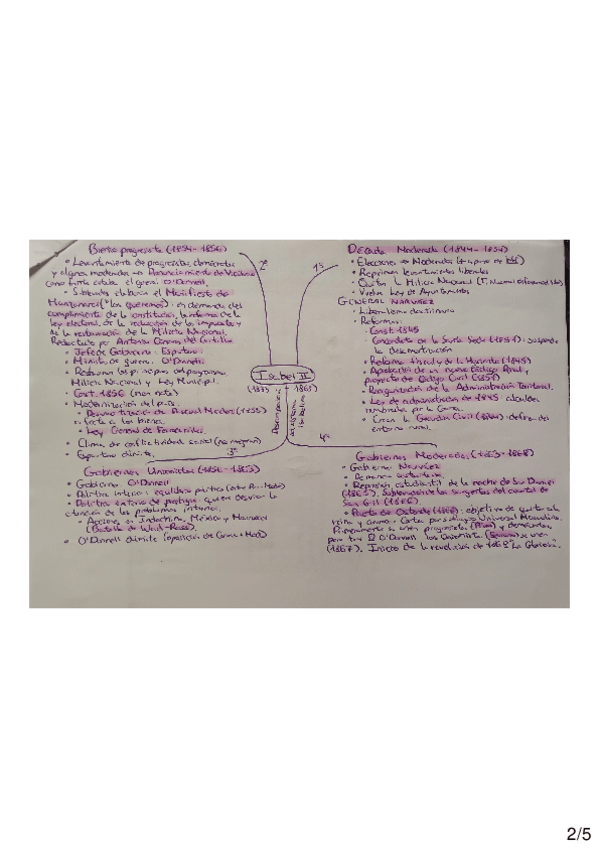 Bienio progresista (1854-1856)
2º
• Levantamiento de progresistas, demócratas
y algunos moderados → Pronunciamiento de Vicálvaro
O'Donnell.
• Sublevados elaboran el Manifiesto de
Manzanares
cumplimiento de la constitución, la reforma de la
ley electoral, de la reducción de los impuestos y
de la restauración de la Milicia Nacional.
Redactado por Antonio Cánovas del Castillo
• Jefe de Gobierno: Espartero
• Ministro de guerra: O'Donnell
• Restauran los principios del programa
Milicia Nacional y Ley Municipal.
• Const. 1856 (non nata)
• Modernización del país.
• Desamortización de Pascual Madoz (1855)
• Ley General de Ferrocarriles.
• Clima de conflictividad social
• Espartero dimite.
1º
Década Moderada (1844-1854)
• Elecciones → Moderados
• Reprimen levantamientos liberales
• Milicia Nacional
• Ley de Ayuntamientos
GENERAL NARVÁEZ
• Liberalismo doctrinario
• Reformas:
• Const. 1845
• Concordato con la Santa Sede (1851):
la desamortización
• Reforma fiscal y de la Hacienda (1845)
• Aprobación de un nuevo Código Penal y
proyecto de Código Civil (1851)
• Reorganización de la Administración Territorial.
• Ley de administración de 1845: alcaldes
nombrados por la Corona.
• Crean la Guardia Civil (1844):
entorno rural.
Isabel II
(1833 1868)
Descomposición
3º
Gobiernos Unionistas (1856-1863)
• Gobierno O'Donnell
• Política interior: equilibrio político
• Política exterior de prestigio: quieren desviar la
atención de los problemas internos.
• Acciones en Indochina, México y Marruecos
(Batalla de Wad-Rass).
• O'Donnell dimite
4º
Gobiernos Moderados (1863-1868)
• Gobierno Narváez
•
• Represión estudiantil de la noche de San Daniel
(1865). Sublevación de los sargentos del cuartel de
San Gil (1866)
• Pacto de Ostende (1866): objetivo de quitar a la
reina y Cortes por sufragio Universal Masculino.
Primeramente se unen progresistas (Prim) y demócratas,
pero tras O'Donnell los Unionistas (Serrano) se unen
(1867). Inicio de la revolución de 1868 "La Gloriosa".
2/5